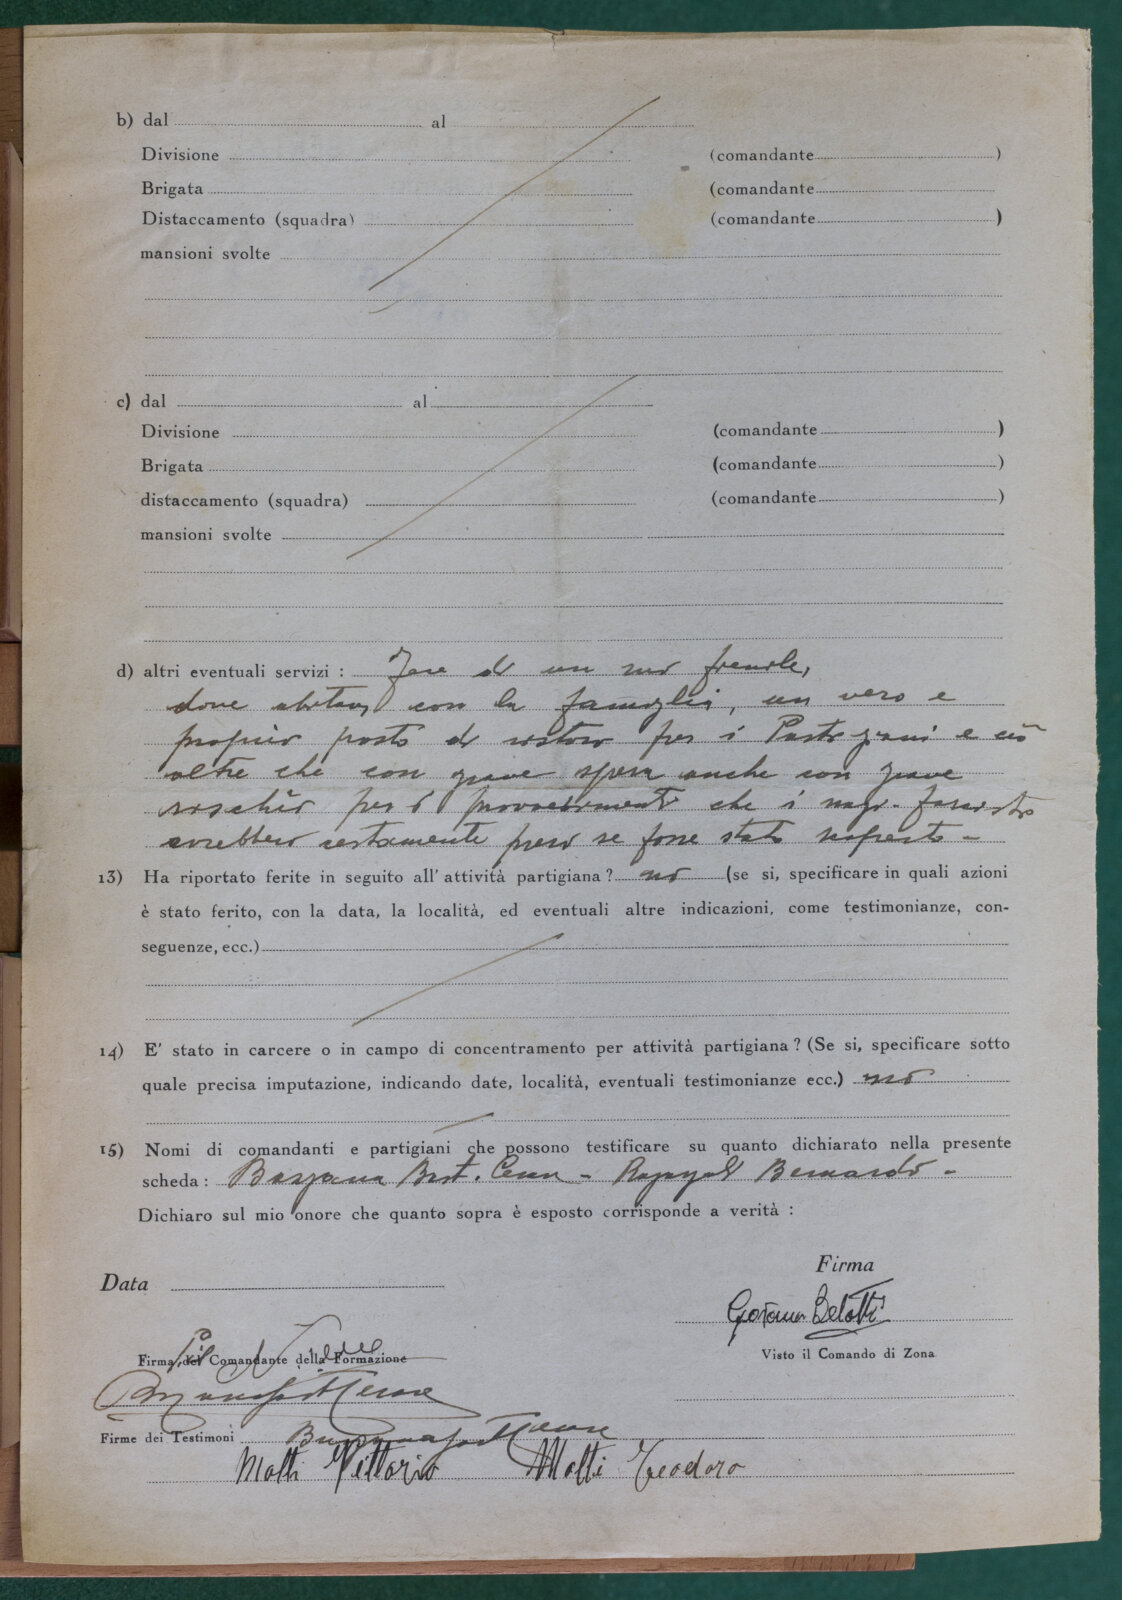 b) dal al
Divisione (comandante )
Brigata (comandante
Distaccamento (squadra) (comandante )
mansioni svolte
c) dal al
Divisione (comandante )
Brigata (comandante )
distaccamento (squadra) (comandante )
mansioni svolte
d) altri eventuali servizi : Fece di un suo fienile,
dove abitava con la famiglia, un vero e
proprio posto di ristoro per i Partigiani e ciò
oltre che con grave spesa anche con grave
rischio per i provvedimenti che i nazi-fascisti
avrebbero certamente preso se fosse stato scoperto -
13) Ha riportato ferite in seguito all' attività partigiana ? no (se si, specificare in quali azioni
è stato ferito, con la data, la località, ed eventuali altre indicazioni, come testimonianze, con-
seguenze, ecc.)
14) E' stato in carcere o in campo di concentramento per attività partigiana ? (Se si, specificare sotto
quale precisa imputazione, indicando date, località, eventuali testimonianze ecc.) no
15) Nomi di comandanti e partigiani che possono testificare su quanto dichiarato nella presente
scheda : Bernardo -
Dichiaro sul mio onore che quanto sopra è esposto corrisponde a verità :
Data Firma
Belotti
Firma del Comandante della Formazione Visto il Comando di Zona
Firme dei Testimoni
Matti Vittorio Matti Teodoro